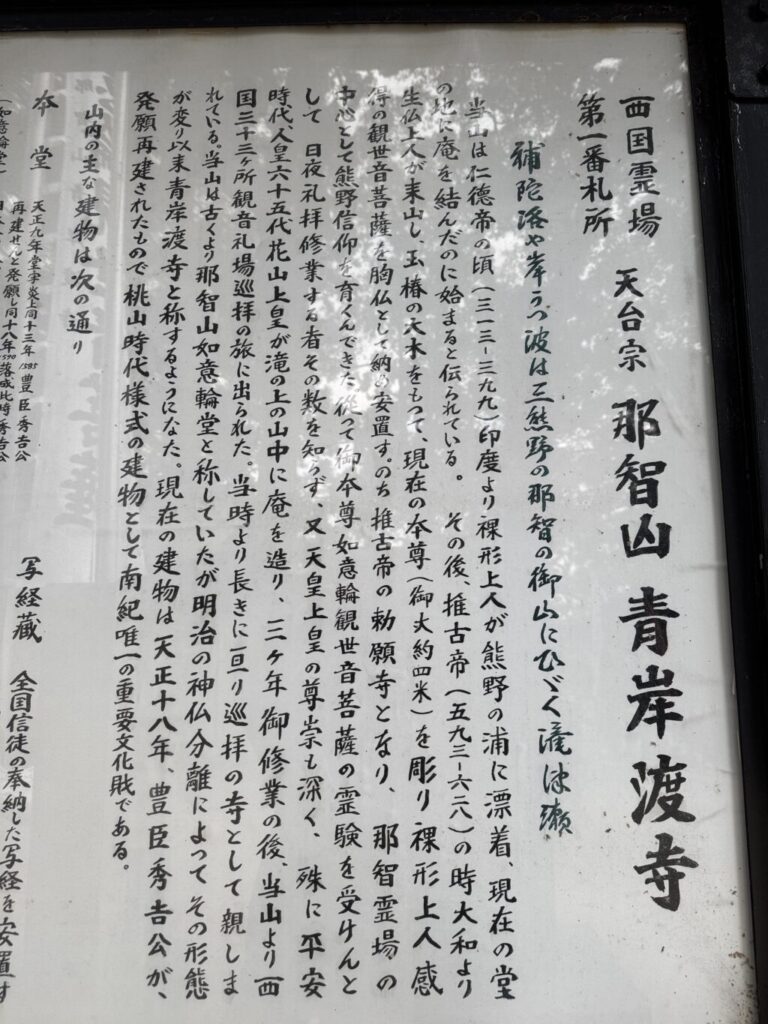 西国霊場
第一番札所
天台宗 那智山 青岸渡寺
補陀洛や岸うつ波は三熊野の那智の御山にひゞく滝津瀬
当山は仁徳帝の頃(三一三ー三九九)印度より裸形上人が熊野の浦に漂着、現在の堂
の地に庵を結んだのに始まると伝られている。 その後、推古帝(五九三ー六二八)の時大和より
生仏上人が来山し、玉椿の大木をもって、現在の本尊(御丈約四米)を彫り裸形上人感
得の観世音菩薩を胸仏として納め安置す。のち推古帝の勅願寺となり、那智霊場の
中心として熊野信仰を育くんできた従って御本尊如意輪観世音菩薩の霊験を受けんと
して 日夜礼拝修業する者その数を知らず、又天皇上皇の尊崇も深く、殊に平安
時代人皇六十五代花山上皇が滝の上の山中に庵を造り、三ヶ年御修業の後、当山より西
国三十三ヶ所観音礼場巡拝の旅に出られた。当時より長きに亘り巡拝の寺として親しま
れている。当山は古くより那智山如意輪堂と称していたが明治の神仏分離によって その形態
が変り以来青岸渡寺と称するようになた。現在の建物は天正十八年、豊臣秀吉公が、
発願再建されたもので桃山時代様式の建物として南紀唯一の重要文化財である。
山内の主な建物は次の通り
本堂
(如意輪堂)
天正九年堂宇炎上同十三年1585豊臣秀吉公
再建せんと発願し同十八年1590落成此時秀吉公
写経蔵
全国信徒の奉納した写経を安置す